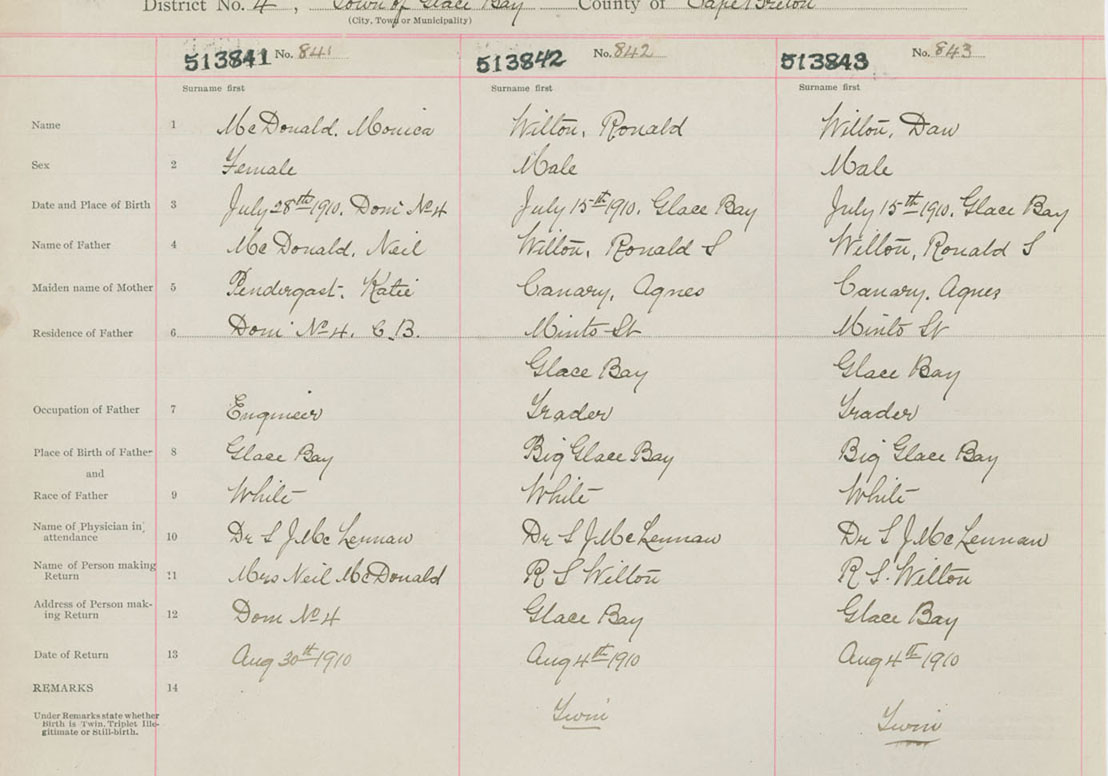 District No. 4, Town of Glace Bay County of Cape Breton
(City, Town or Municipality)
513841 No. 841 513842 No. 842 513843 No. 843
Surname first Surname first Surname first
Name 1 McDonald, Monica Wilton, Ronald Wilton, Dan
Sex 2 Female Male Male
Date and Place of Birth 3 July 28th 1910. Dom No 4 July 15th 1910. Glace Bay July 15th 1910. Glace Bay
Name of Father 4 McDonald, Neil Wilton, Ronald S Wilton, Ronald S
Maiden name of Mother 5 Pendergast, Katie Canary, Agnes Canary, Agnes
Residence of Father 6 Dom No 4. C.B. Minto St Minto St
Glace Bay Glace Bay
Occupation of Father 7 Engineer Trader Trader
Place of Birth of Father 8 Glace Bay Big Glace Bay Big Glace Bay
and
Race of Father 9 White White White
Name of Physician in
attendance 10 Dr S J McLennan Dr S J McLennan Dr S J McLennan
Name of Person making
Return 11 Mrs Neil McDonald R S Wilton R S. Wilton
Address of Person mak-
ing Return 12 Dom No 4 Glace Bay Glace Bay
Date of Return 13 Aug 30th 1910 Aug 4th 1910 Aug 4th 1910
REMARKS 14
Under Remarks state whether Twin Twin
Birth is Twin, Triplet Ille-
gitimate or Still-birth.